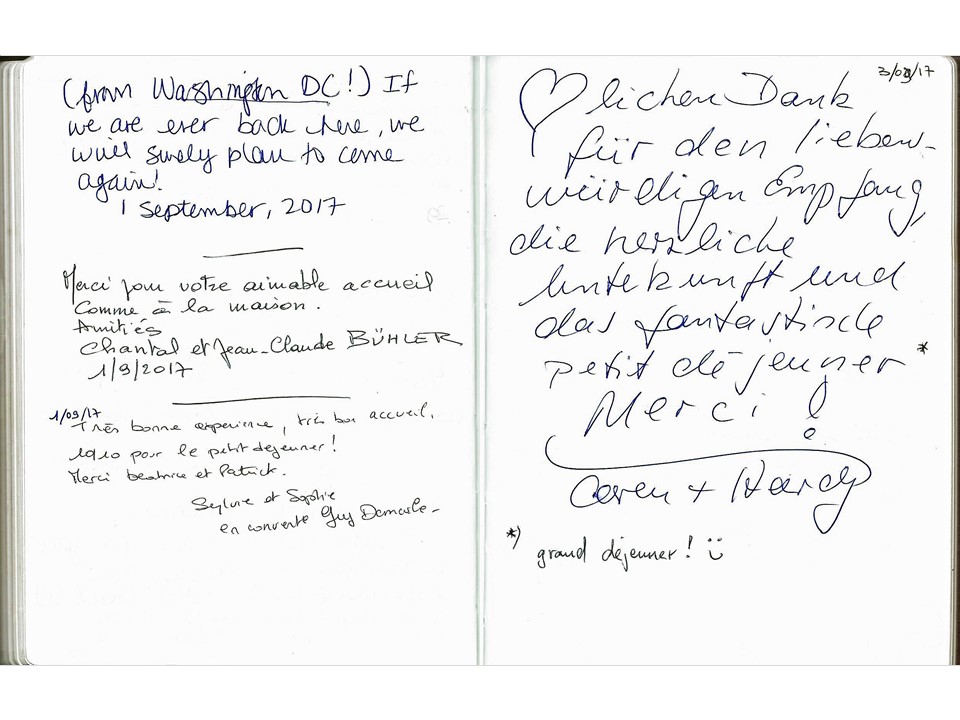 (from Washington DC!) If
we are ever back here, we
will surely plan to come
again!
1 September, 2017
Merci pour votre aimable accueil
Comme à la maison.
Amitiés
Chantal et Jean-Claude BÜHLER
1/9/2017
1/09/17
Très bonne experience, très bon accueil.
10/10 pour le petit dejeuner!
Merci beatrice et Patrick.
Sylvie et Sophie
en convente Guy Demarle-
3/09/17
♡lichen Dank
für den liebens-
würdigen Empfang,
die herzliche
Unterkunft und
das fantastische
petit déjeuner *
Merci!
Caren + Hardy
*) grand déjeuner! ü